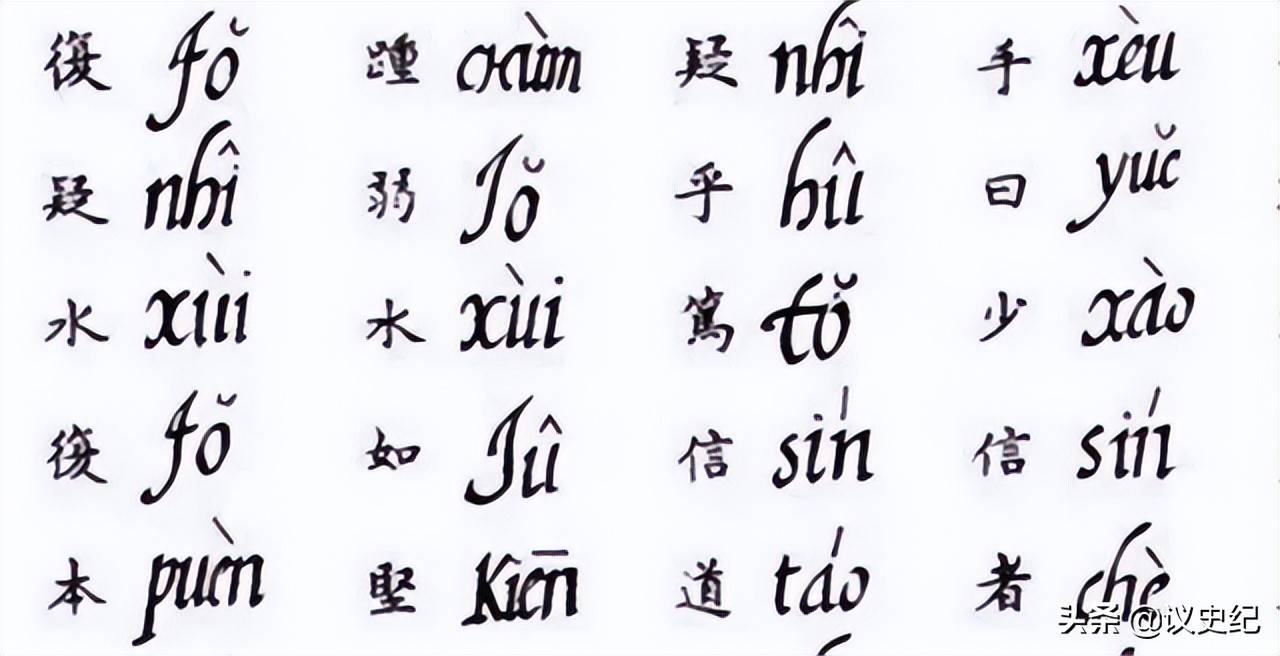 復 fŏ 踵 chùm 疑 nhî 手 xèu
疑 nhî 弱 jŏ 乎 hû 曰 yuĕ
水 xùi 水 xùi 篤 tŏ 少 xào
復 fŏ 如 jû 信 sín 信 sín
本 puèn 堅 Kiēn 道 táo 者 chè
头条 @议史纪